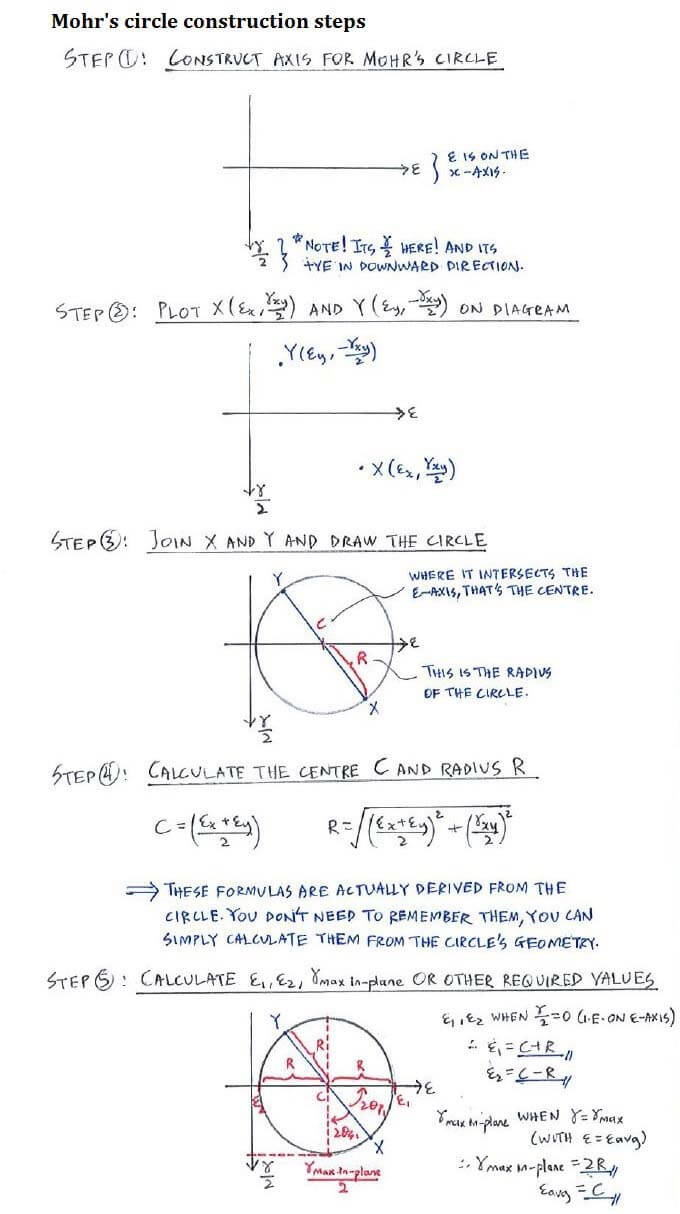 Mohr's circle construction steps
STEP ①: CONSTRUCT AXIS FOR MOHR'S CIRCLE
ε } ε IS ON THE
x-AXIS.
γ/2 } *NOTE! ITS γ/2 HERE! AND ITS
+VE IN DOWNWARD DIRECTION.
STEP ②: PLOT X(εx, γxy/2) AND Y(εy, -γxy/2) ON DIAGRAM
.Y(εy, -γxy/2)
ε
• X(εx, γxy/2)
γ/2
STEP ③: JOIN X AND Y AND DRAW THE CIRCLE
Y
WHERE IT INTERSECTS THE
ε-AXIS, THAT'S THE CENTRE.
C
ε
R
THIS IS THE RADIUS
OF THE CIRCLE.
X
γ/2
STEP ④: CALCULATE THE CENTRE C AND RADIUS R
C = ((εx + εy)/2) R = √(((εx + εy)/2)² + (γxy/2)²)
⇒ THESE FORMULAS ARE ACTUALLY DERIVED FROM THE
CIRCLE. YOU DON'T NEED TO REMEMBER THEM, YOU CAN
SIMPLY CALCULATE THEM FROM THE CIRCLE'S GEOMETRY.
STEP ⑤: CALCULATE ε1, ε2, γmax in-plane OR OTHER REQUIRED VALUES
Y
ε1, ε2 WHEN γ/2 = 0 (I.E. ON ε-AXIS)
R
∴ ε1 = C+R
R R
ε2 = C-R
ε
ε2 C 2θp1 ε1
γmax in-plane WHEN γ = γmax
(WITH ε = εavg)
2θs1
X
∴ γmax in-plane = 2R
γ/2
γmax in-plane/2
εavg = C